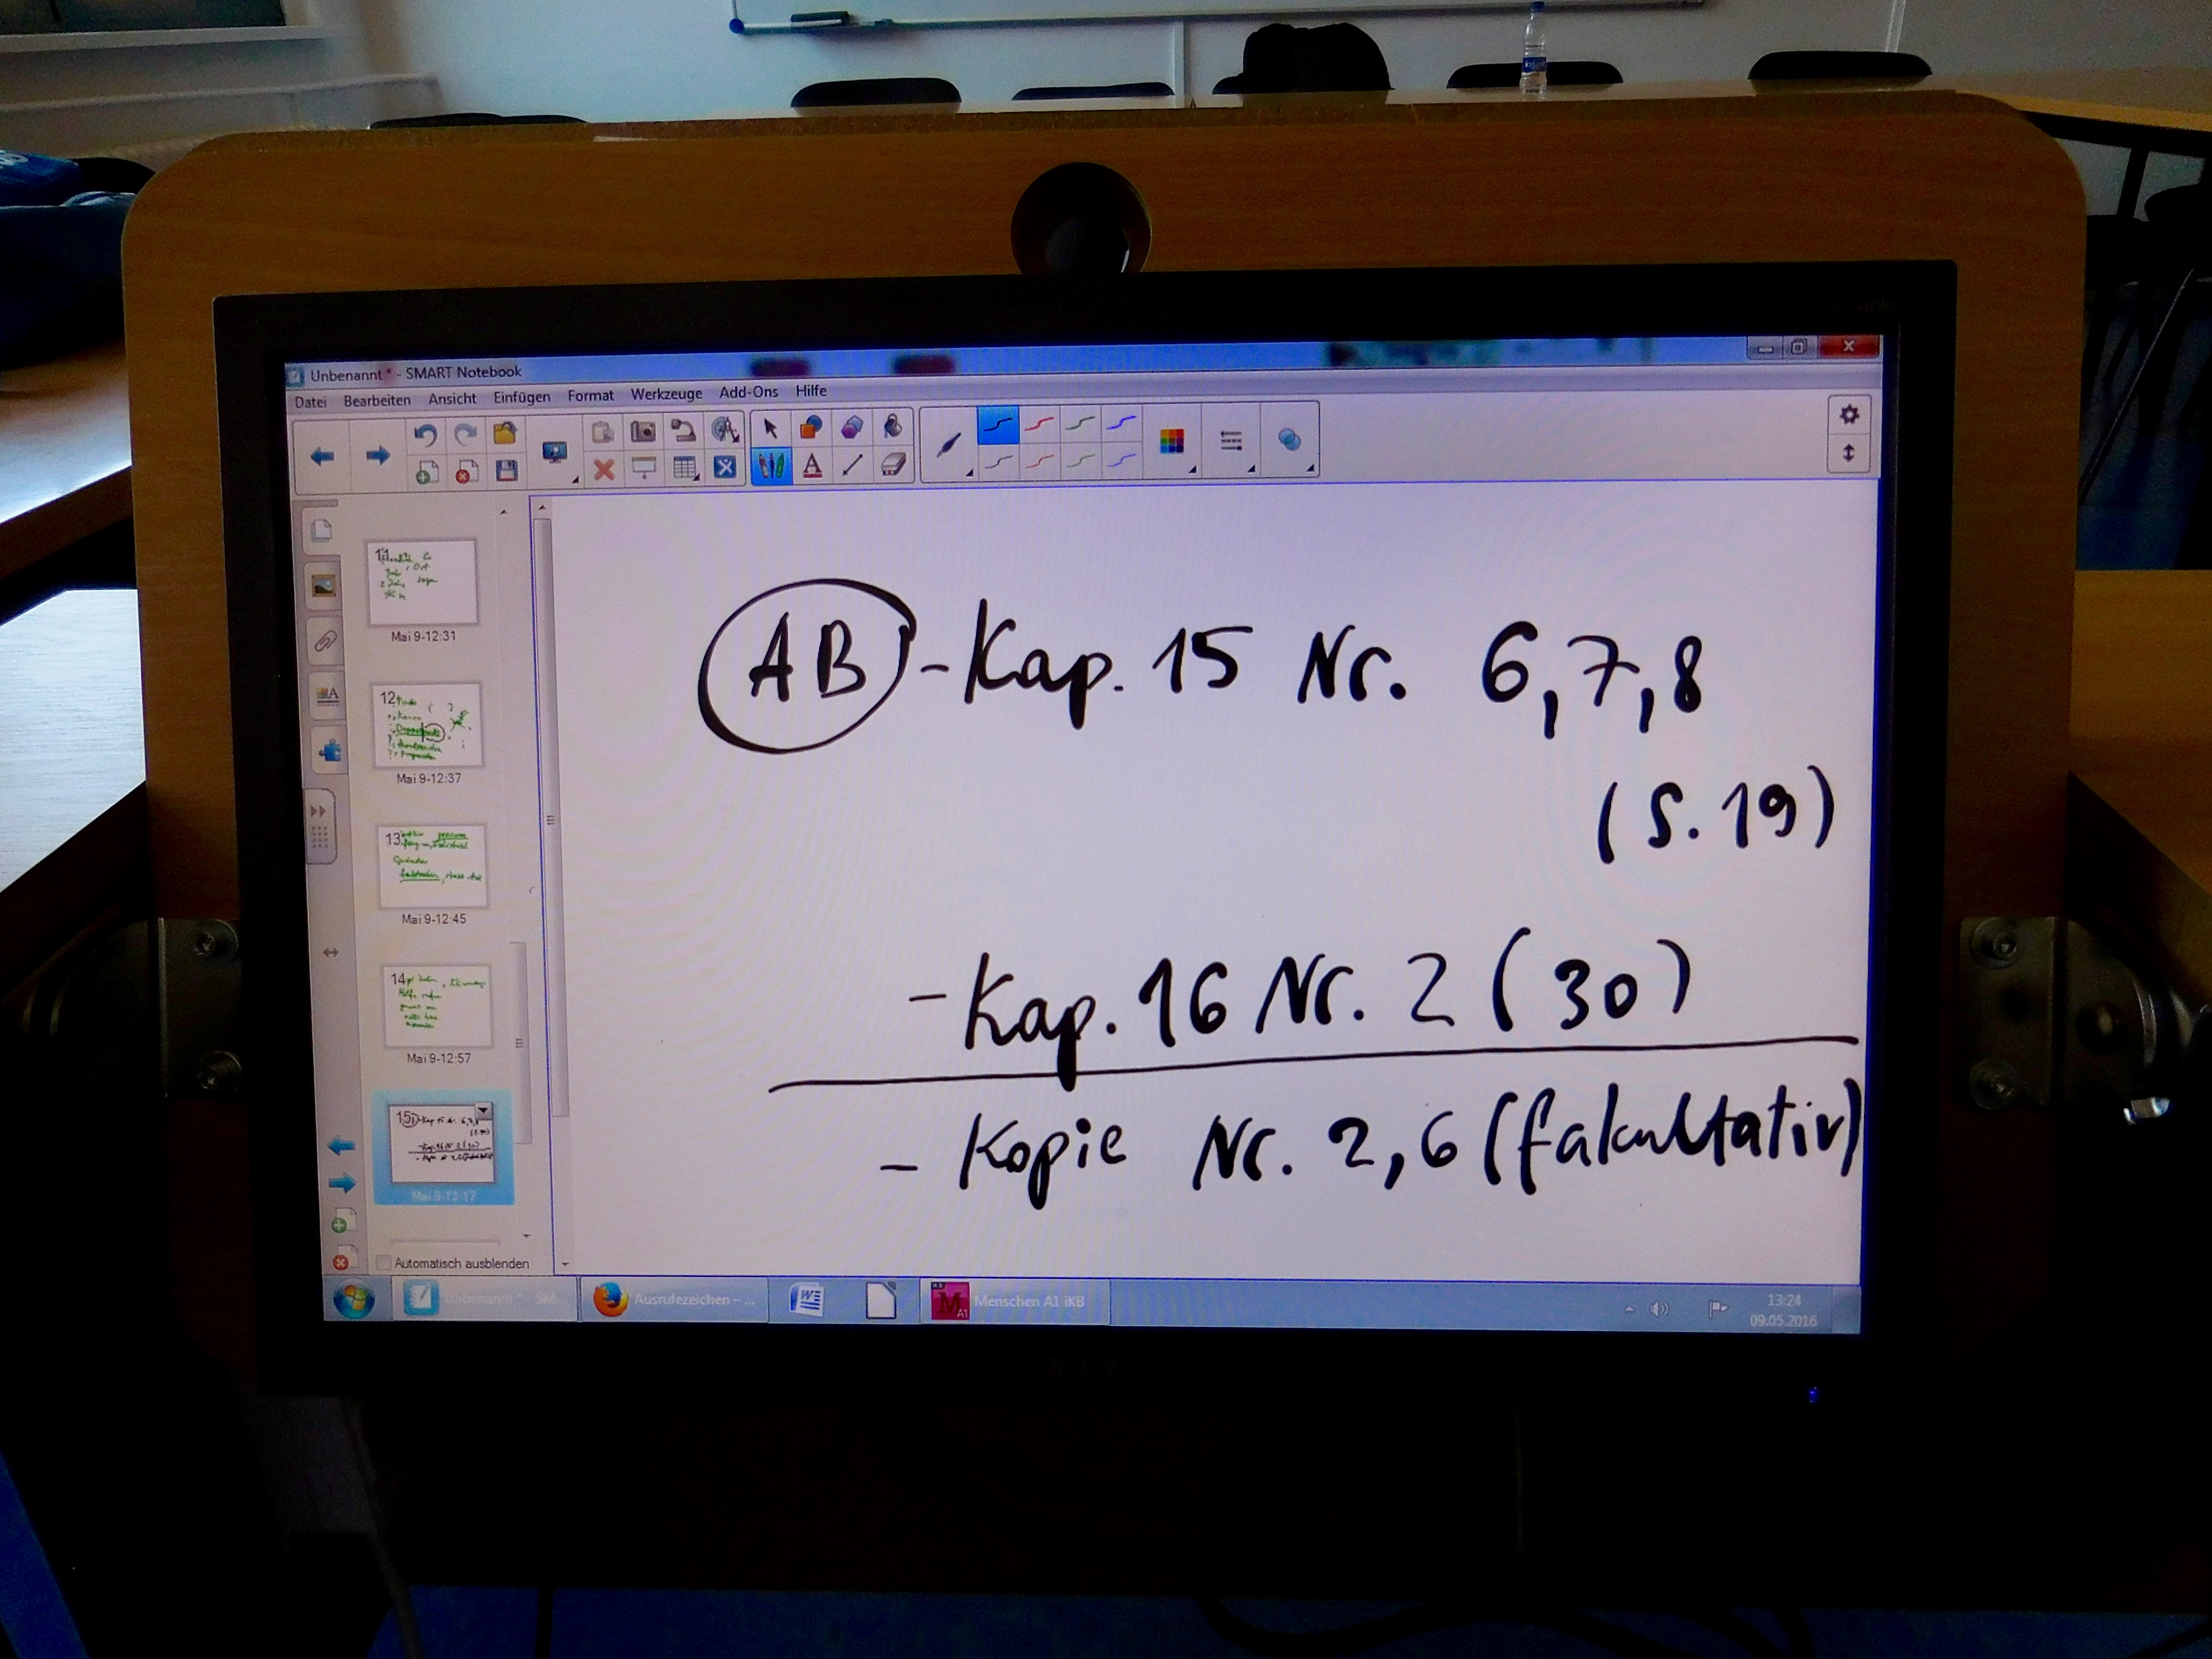 Unbenannt * - SMART Notebook
Datei Bearbeiten Ansicht Einfügen Format Werkzeuge Add-Ons Hilfe
11
Mai 9-12:31
12
Mai 9-12:37
13
Mai 9-12:45
14
Mai 9-12:57
15
Mai 9-13:17
Automatisch ausblenden
AB - Kap. 15 Nr. 6,7,8
(S. 19)
- Kap. 16 Nr. 2 (30)
- Kopie Nr. 2,6 (fakultativ)
Unbenannt * - SM...
Ausrufezeichen – ...
Menschen A1 iKB
13:24
09.05.2016